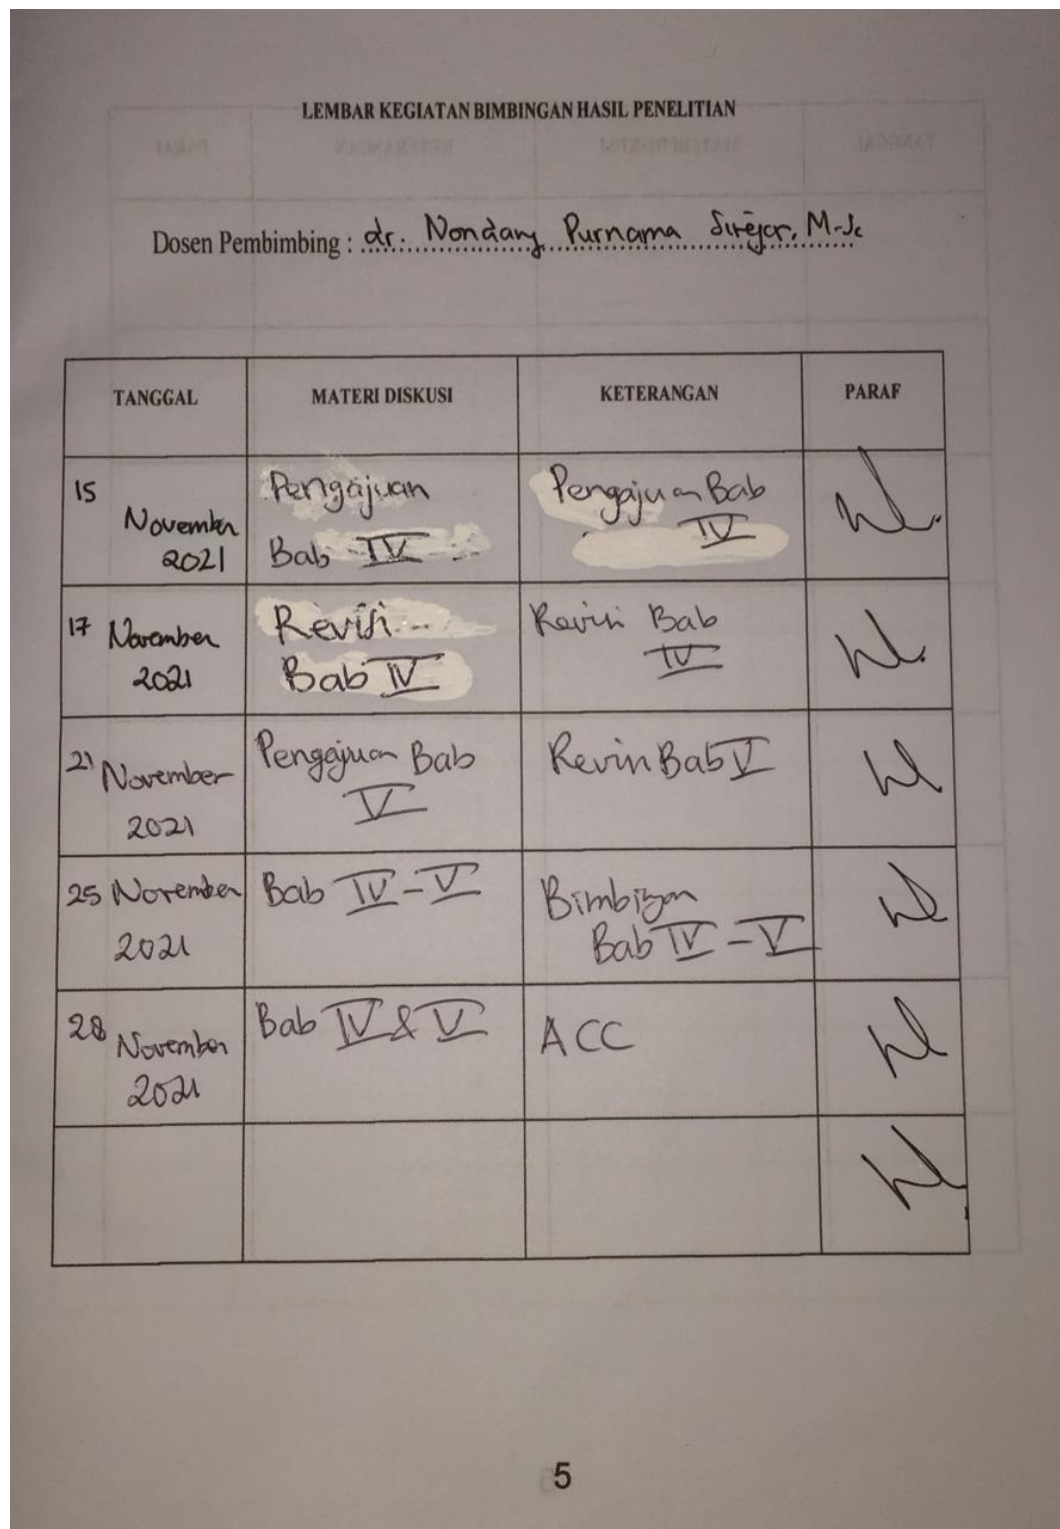 LEMBAR KEGIATAN BIMBINGAN HASIL PENELITIAN
Dosen Pembimbing : dr. Nondang Purnama Siregar, M.Sc
TANGGAL MATERI DISKUSI KETERANGAN PARAF
15 November 2021
Pengajuan
Bab IV
Pengajuan Bab
IV
17 November
2021
Revisi
Bab IV
Revisi Bab
IV
21 November
2021
Pengajuan Bab
V
Revisi Bab V
25 November
2021
Bab IV - V
Bimbingan
Bab IV - V
28 November
2021
Bab IV & V
ACC
5